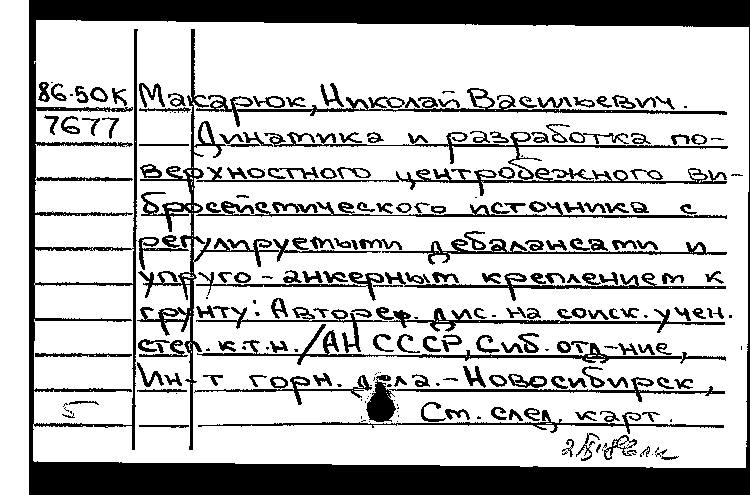 86-50К Макарюк, Николай Васильевич.
7677 Динамика и разработка по-
верхностного центробежного ви-
бросейсмического источника с
регулируемыми дебалансами и
упруго-анкерным креплением к
грунту: Автореф. дис. на соиск. учен.
степ. к.т.н. / АН СССР, Сиб. отд-ние,
Ин-т горн. дела. - Новосибирск,
См. след. карт.